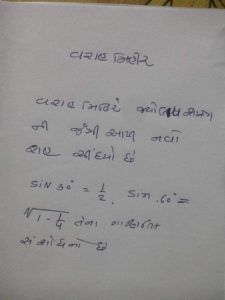 વરાહ મિહીર
વરાહ મિહિરે જ્યોતિષ શાસ્ત્ર
ની જંત્રી આપી નવો
રાહ ચીંધ્યો છે
sin 30° = 1/2, sin 60° =
√1 - 1/4 તેના
સંશોધનો છે